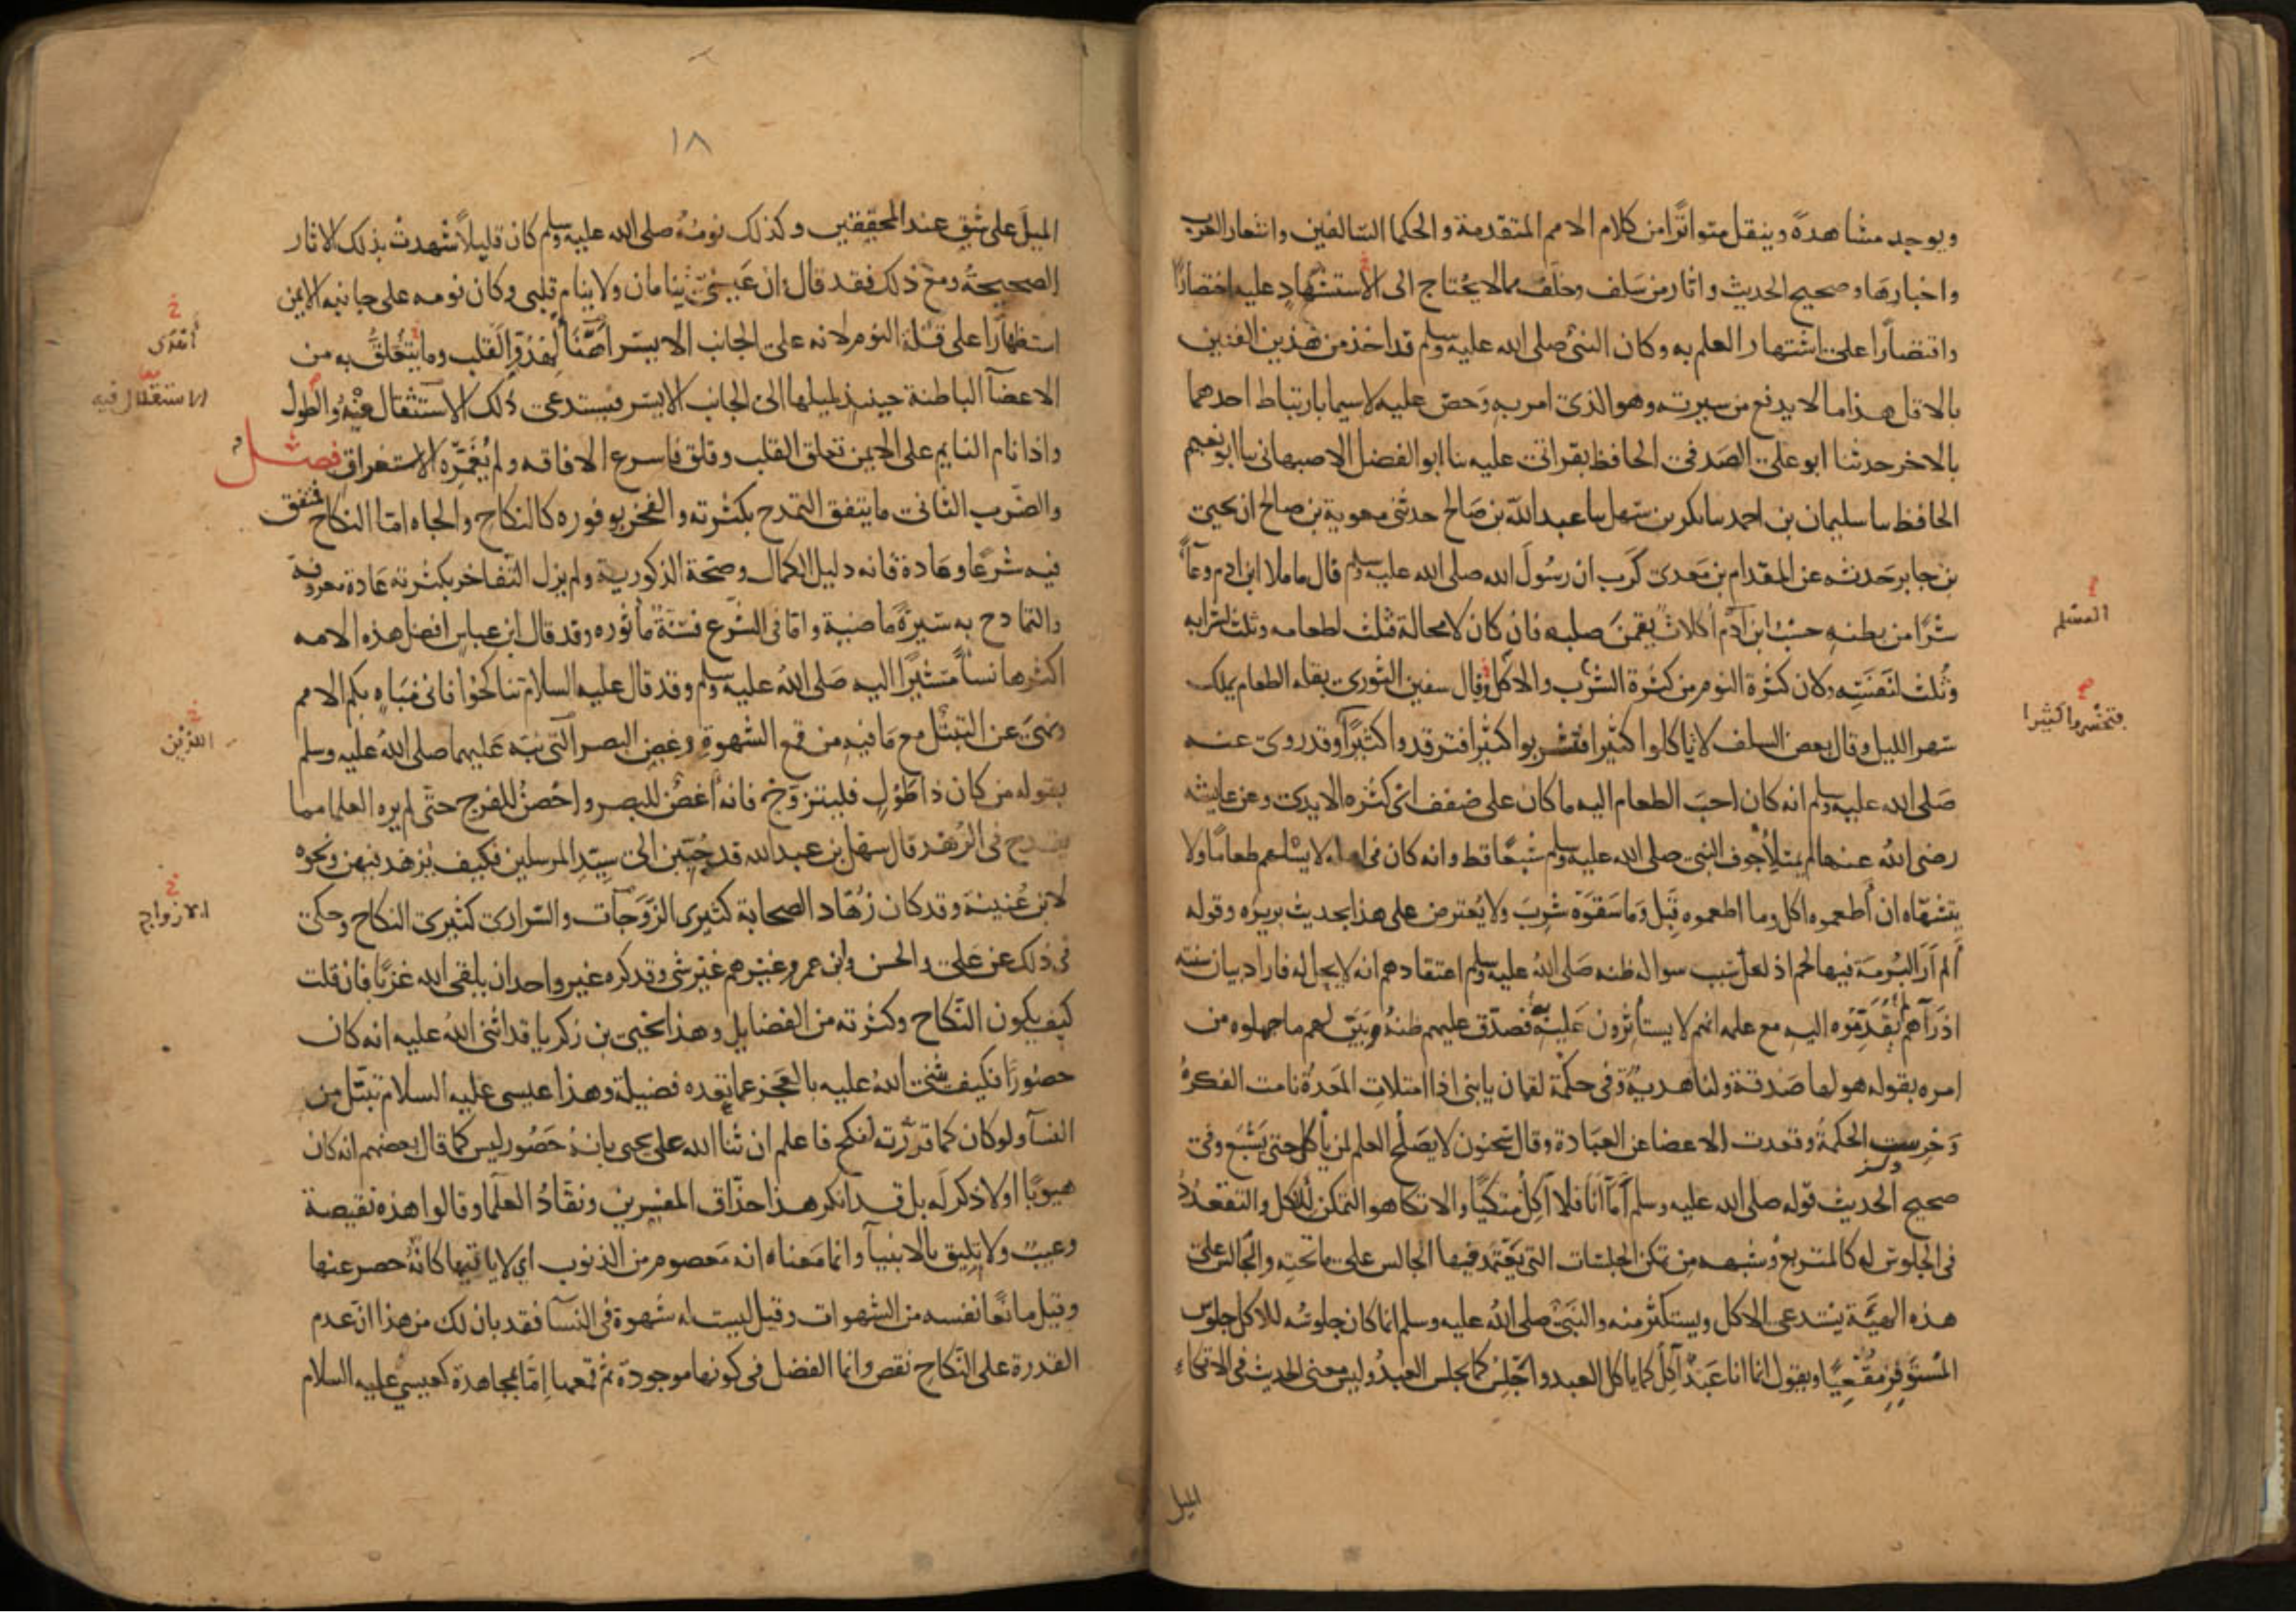 ويوجد مشاهدة وينقل متواترا من كلام الامم المتقدمة والحكما السالفين واشعار العرب
واخبارها وصحيح الحديث واثار من سلف وخلف مما لا يحتاج الى الاستشهاد عليه اختصارا
واقتصارا على اشتهار العلم به وكان النبي صلى الله عليه وسلم قد اخذ من هذين الفنين
بالاقل هذا ما لا يدفع من سيرته وهو الذي امر به وحض عليه لا سيما بارتباط احدهما
بالاخر حدثنا ابو علي الصدفي الحافظ بقراتي عليه ثنا ابو الفضل الاصبهاني ثنا ابو نعيم
الحافظ ثنا سليمان بن احمد ثنا بكر بن سهل ثنا عبد الله بن صالح حدثني معوية بن صالح ان يحيى
بن جابر حدثه عن المقدام بن معدي كرب ان رسول الله صلى الله عليه وسلم قال ما ملا ابن ادم وعآ
شرا من بطنه حسب ابن آدم اكلات يقمن صلبه فان كان لا محالة فثلث لطعامه وثلث لشرابه
المسلم
وثلث لنفسه ولان كثرة النوم من كثرة الشرب والاكل وقال سفين الثوري بقلة الطعام يملك
فتخسروا كثيرا
سهر الليل وقال بعض السلف لا تاكلوا كثيرا فتشربوا كثيرا فترقدوا كثيرا وقد روي عنه
صلى الله عليه وسلم انه كان احب الطعام اليه ما كان على ضفف اي كثره الايدي وعن عايشه
رضي الله عنها لم يمتلأ جوف النبي صلى الله عليه وسلم شبعا قط وانه كان في اهله لا يسئلهم طعاما ولا
يتشهاه ان أطعموه اكل وما اطعموه قبل وما سقوه شرب ولا يعترض على هذا بحديث بريره وقوله
ألم أر البرمة فيها لحم اذ لعل سبب سواله ظنه صلى الله عليه وسلم اعتقادهم انه لا يحل له فاراد بيان سنته
اذ رآهم لم يقدموه اليه مع علمه انهم لا يستأثرون عليه به فصدق عليهم ظنه وبين لهم ما جهلوه من
امره بقوله هو لها صدقة ولنا هدية وفي حكمة لقمان يا بني اذا امتلات المعدة نامت الفكرة
وخرست الحكمة وقعدت الاعضا عن العبادة وقال سحنون لا يصلح العلم لمن يأكل حتى يشبع وفي
صحيح الحديث قوله صلى الله عليه وسلم أما أنا فلا آكل متكيا والاتكا هو التمكن للاكل والتقعدد
في الجلوس له كالمتربع وشبهه من تمكن الجلسات التي يعتمد فيها الجالس على ما تحته والجالس على
هذه الهيئة يستدعي الاكل ويستكثر منه والنبي صلى الله عليه وسلم انما كان جلوسه للاكل جلوس
المستوفز مقعيا ويقول انما انا عبد آكل كما ياكل العبد واجلس كما يجلس العبد وليس معنى الحديث في الاتكاء
الميل
١٨
الميل على شق عند المحققين وكذلك نومه صلى الله عليه وسلم كان قليلا شهدت بذلك الاثار
الصحيحة ومع ذلك فقد قال ان عيني تنامان ولا ينام قلبي وكان نومه على جانبه الايمن
استظهارا على قلة النوم لانه على الجانب الايسر اهنأ لهدو القلب وما يتعلق به من
الاعضآ الباطنة حينيذ لميلها الى الجانب الايسر فيستدعي ذلك الاستثقال فيه والطول
الاستثقال فيه
واذا نام النايم على الايمن تعلق القلب وقلق فاسرع الافاقه ولم يغمره الاستغراق فصل
والضرب الثاني ما يتفق التمدح بكثرته والفخر بوفوره كالنكاح والجاه اما النكاح فمتفق
فيه شرعا وعادة فانه دليل الكمال وصحة الذكورية ولم يزل التفاخر بكثرته عادة معروفة
والتمادح به سيرة ماضية واما في الشرع فسنة مأثوره وقد قال ابن عباس افضل هذه الامه
اكثرها نسآ مشيرا اليه صلى الله عليه وسلم وقد قال عليه السلام تناكحوا فاني مباه بكم الامم
ونهى عن التبتل مع ما فيه من قمع الشهوة وغض البصر التي نبه عليهما صلى الله عليه وسلم
اللذين
بقوله من كان ذا طول فليتزوج فانه أغض للبصر واحصن للفرج حتى لم يره العلما مما
يقدح في الزهد قال سهل بن عبد الله قد حببن الى سيد المرسلين فكيف يزهد فيهن ونحوه
لابن عيينة وقد كان زهاد الصحابة كثيري الزوجات والسراري كثيري النكاح وحكي
الازواج
في ذلك عن علي والحسن وابن عمر وغيرهم غير شي وقد كره غير واحد ان يلقى الله عزبا فان قلت
كيف يكون النكاح وكثرته من الفضايل وهذا يحيى بن زكريا قد اثنى الله عليه انه كان
حصورا فكيف يثني الله عليه بالعجز عما تعده فضيلة وهذا عيسى عليه السلام تبتل من
النسآ ولو كان كما قررته لنكح فاعلم ان ثنآ الله على يحيى بانه حصور ليس كما قال بعضهم انه كان
هيوبا او لا ذكر له بل قد انكر هذا حذاق المفسرين ونقاد العلمآ وقالوا هذه نقيصة
وعيب ولا تليق بالانبيآ وانما معناه انه معصوم من الذنوب اي لا ياتيها كانه حصر عنها
وقيل مانعا نفسه من الشهوات وقيل ليست له شهوة في النسآ فقد بان لك من هذا ان عدم
القدرة على النكاح نقص وانما الفضل في كونها موجودة ثم قمعها اما بمجاهدة كعيسى عليه السلام